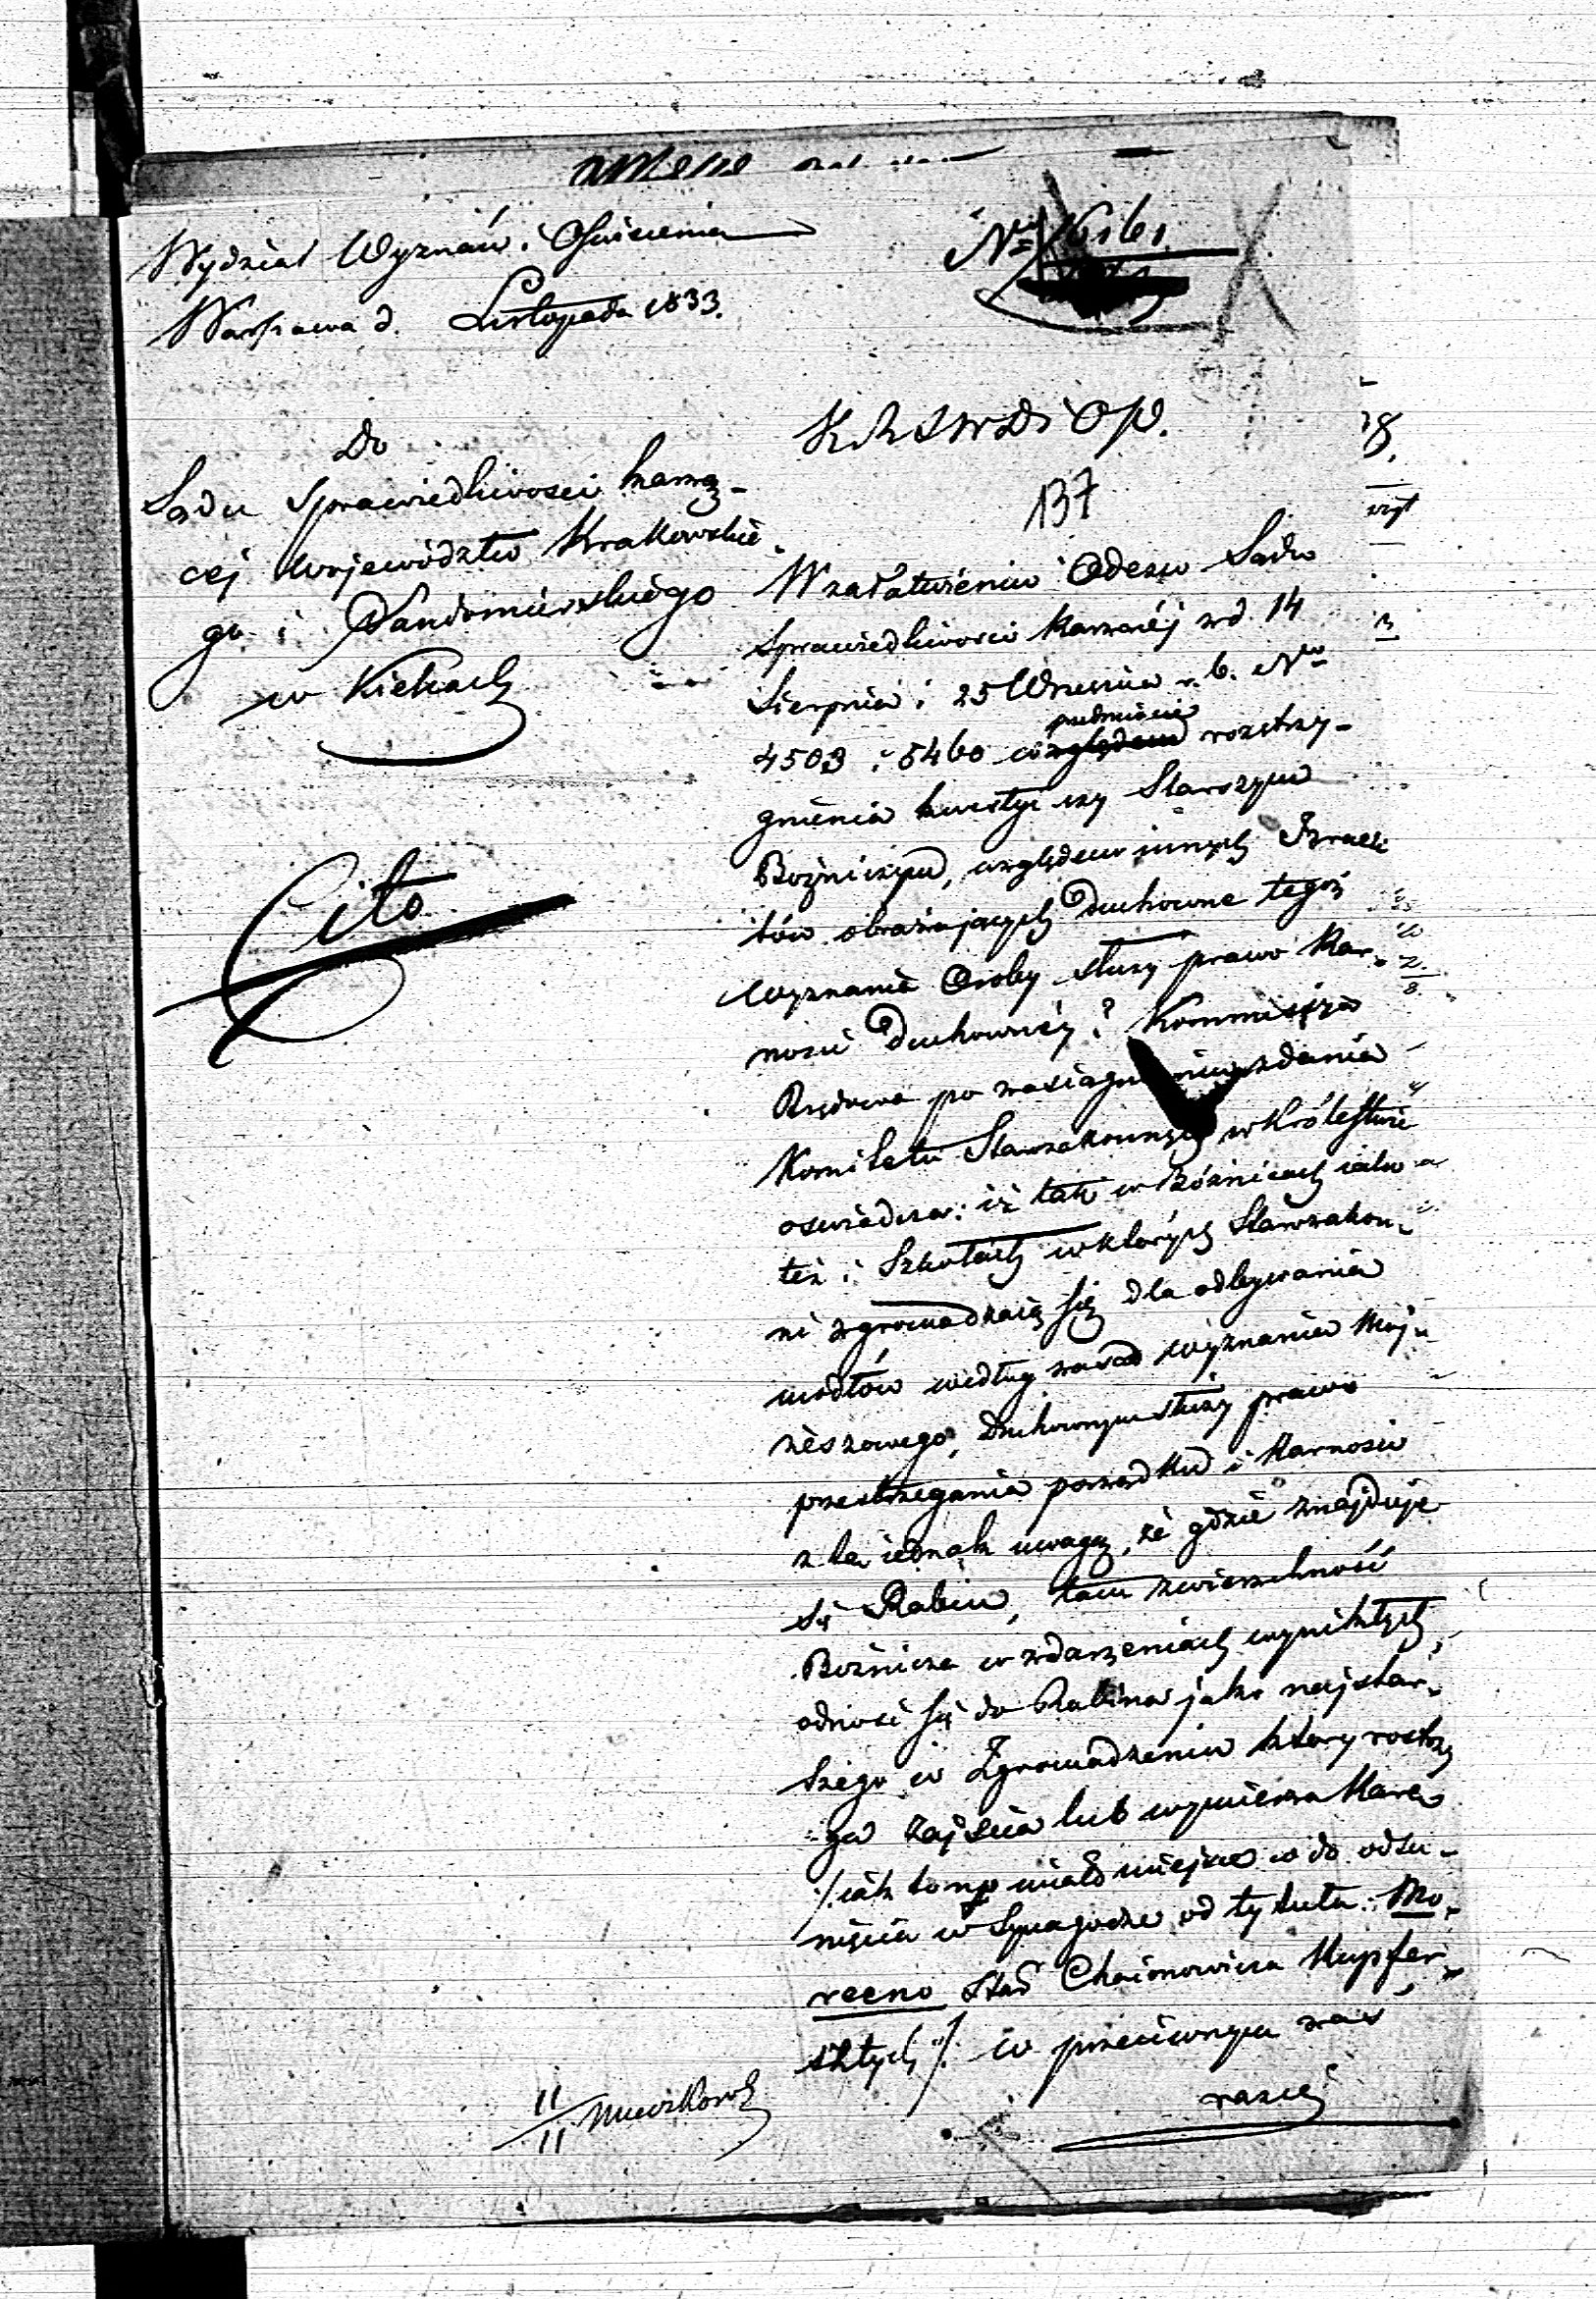 Wydział Wyznań i Oświecenia
Warszawa d. Listopada 1833.
Nro 6161
Do
Sądu Sprawiedliwości karzą-
cej Województw Krakowskie
go i Sandomierskiego
w Kielcach
Cito
K R S W D i O P.
137
W załatwieniu Odezw Sądu
Sprawiedliwości Karzącej z d. 14
Sierpnia i 25 Września r. b. Nro
4503 i 5460 względem przedmiocie rozstrzy-
gnienia kwestyi czy Starszym
Bożniczym, względem innych Izraeli
tów obrażających duchowne tegoż
wyznania Osoby służy prawo Kar-
ności Duchownéy? Kommissya
Rządowa po zasiągnieniu zdania
Komitetu Starozakonnych w Królestwie
oświadcza: iż tak w Bóżnicach iako
też i Szkołach w których Starozakon-
ni zgromadzaią się dla odbywania
modłów według zasad wyznania Moj-
żeszowego, Duchownym służy prawo
przestrzegania porządku i Karności
z tą iednak uwagą, że gdzie znajduje
się Rabin, tam zwierzchność
Bożnicza w zdarzeniach wynikłych,
odnosi się do Rabina jako najstar-
szego w Zgromadzeniu który rostrzy
ga zajścia lub wymierza Karę
/: iak to np miało miejsce co do odsu-
nięcia w Synagodze od tytułu: Mo-
recno Chaimowicza Kupfer-
sztych :/ w przeciwnym zaś
razie
11/11